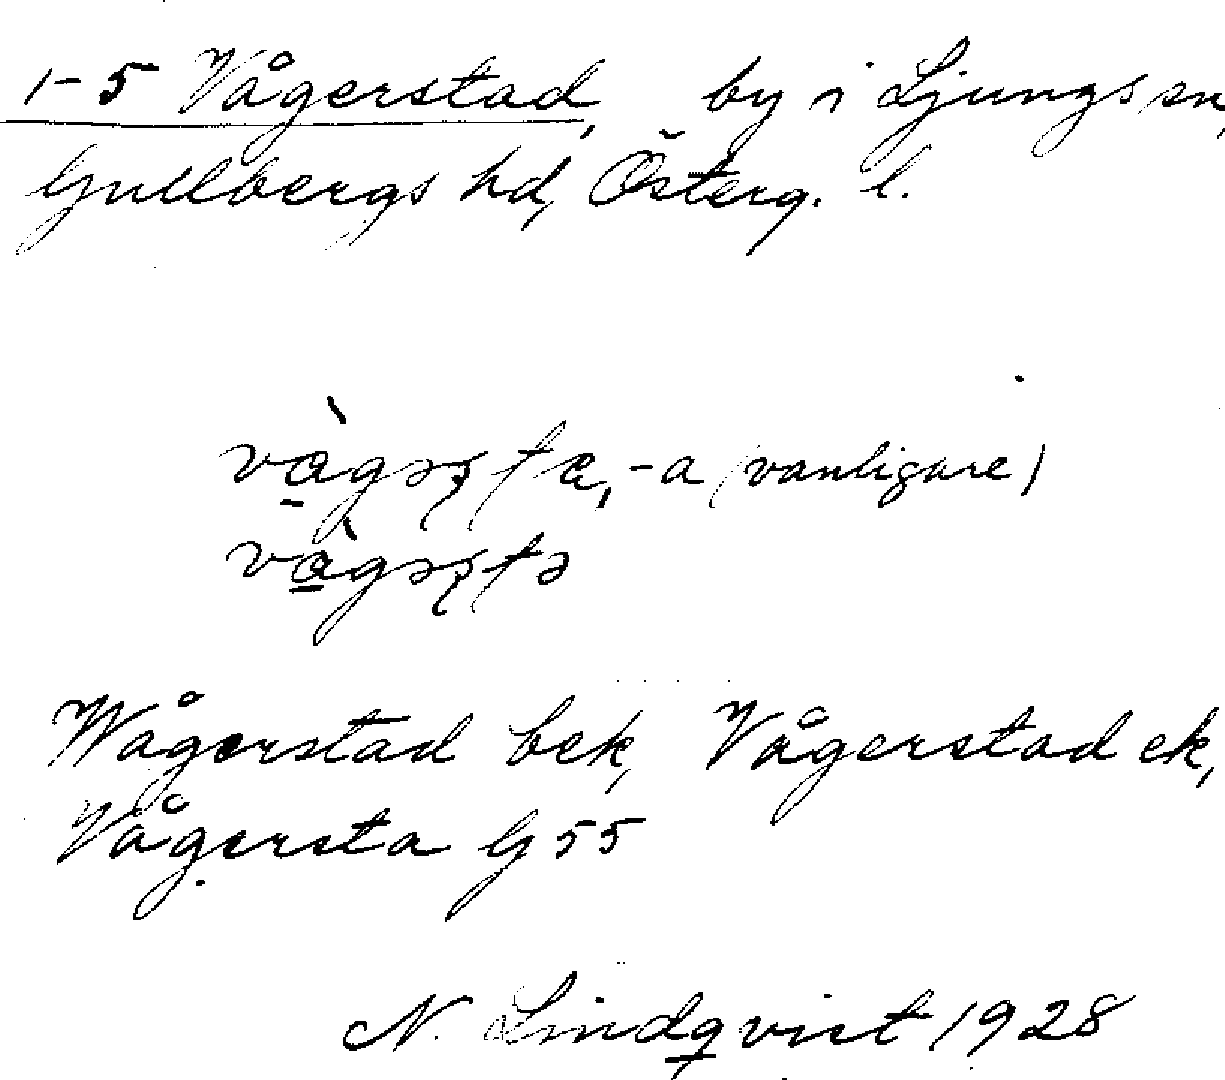 1-5 Vågerstad, by i Ljungs sn,
Gullbergs hd, Österg. l.
-a (vanligare)
Wågerstad bek, Vågerstad ek,
Vågersta G 55
N. Lindqvist 1928